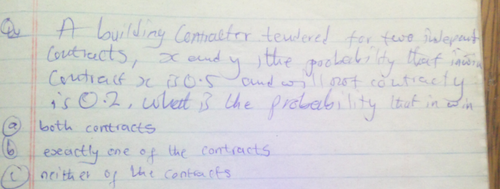 Q A building Contractor tendered for two independent
Contracts, x and y, the probability that
Contract x is 0.5 and will not contract y
is 0.2, what is the probability that in win
(a) both contracts
(b) exactly one of the contracts
(c) neither of the contracts